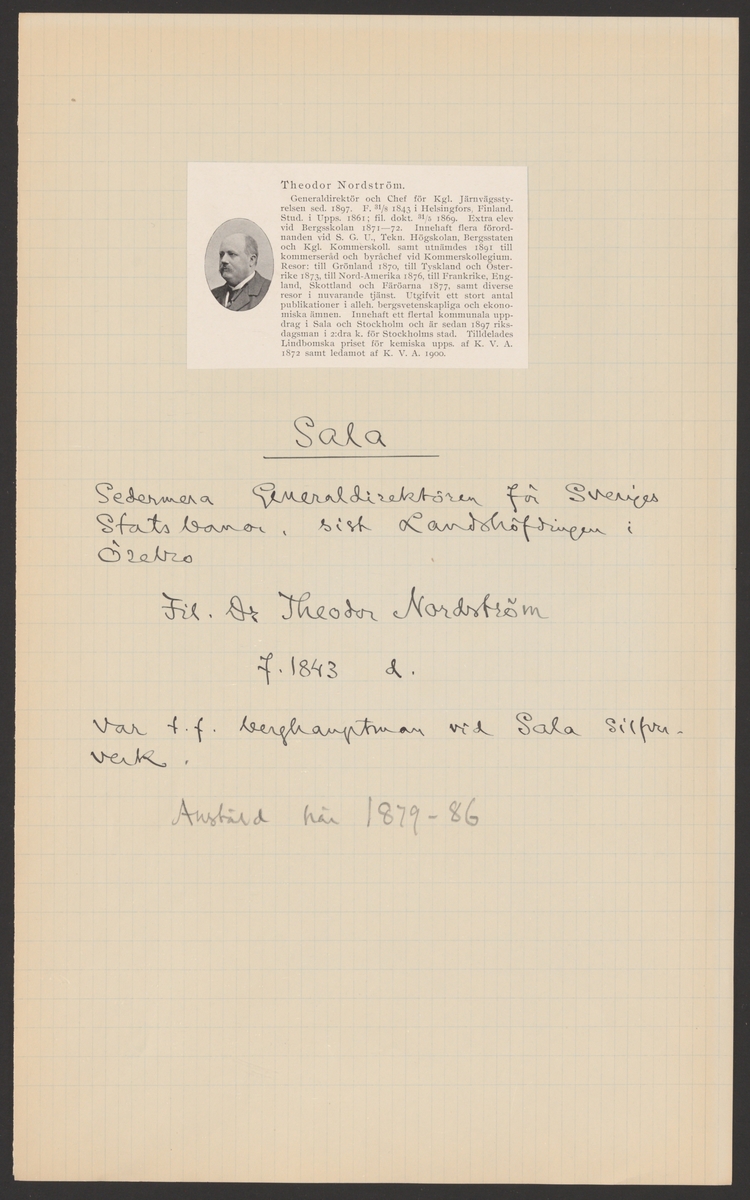 Theodor Nordström.
Generaldirektör och Chef för Kgl. Järnvägssty-
relsen sed. 1897. F. 31/8 1843 i Helsingfors, Finland.
Stud. i Upps. 1861; fil. dokt. 31/5 1869. Extra elev
vid Bergsskolan 1871—72. Innehaft flera förord-
nanden vid S. G. U., Tekn. Högskolan, Bergsstaten
och Kgl. Kommerskoll. samt utnämdes 1891 till
kommerseråd och byråchef vid Kommerskollegium.
Resor: till Grönland 1870, till Tyskland och Öster-
rike 1873, till Nord-Amerika 1876, till Frankrike, Eng-
land, Skottland och Färöarna 1877, samt diverse
resor i nuvarande tjänst. Utgifvit ett stort antal
publikationer i alleh. bergsvetenskapliga och ekono-
miska ämnen. Innehaft ett flertal kommunala upp-
drag i Sala och Stockholm och är sedan 1897 riks-
dagsman i 2:dra k. för Stockholms stad. Tilldelades
Lindbomska priset för kemiska upps. af K. V. A.
1872 samt ledamot af K. V. A. 1900.
Sala
Sedermera Generaldirektören för Sveriges
Statsbanor, sist Landshöfdingen i
Örebro
Fil. Dr Theodor Nordström
f. 1843 d.
Var t.f. berghauptman vid Sala Silfver-
verk.
Anställd här 1879-86